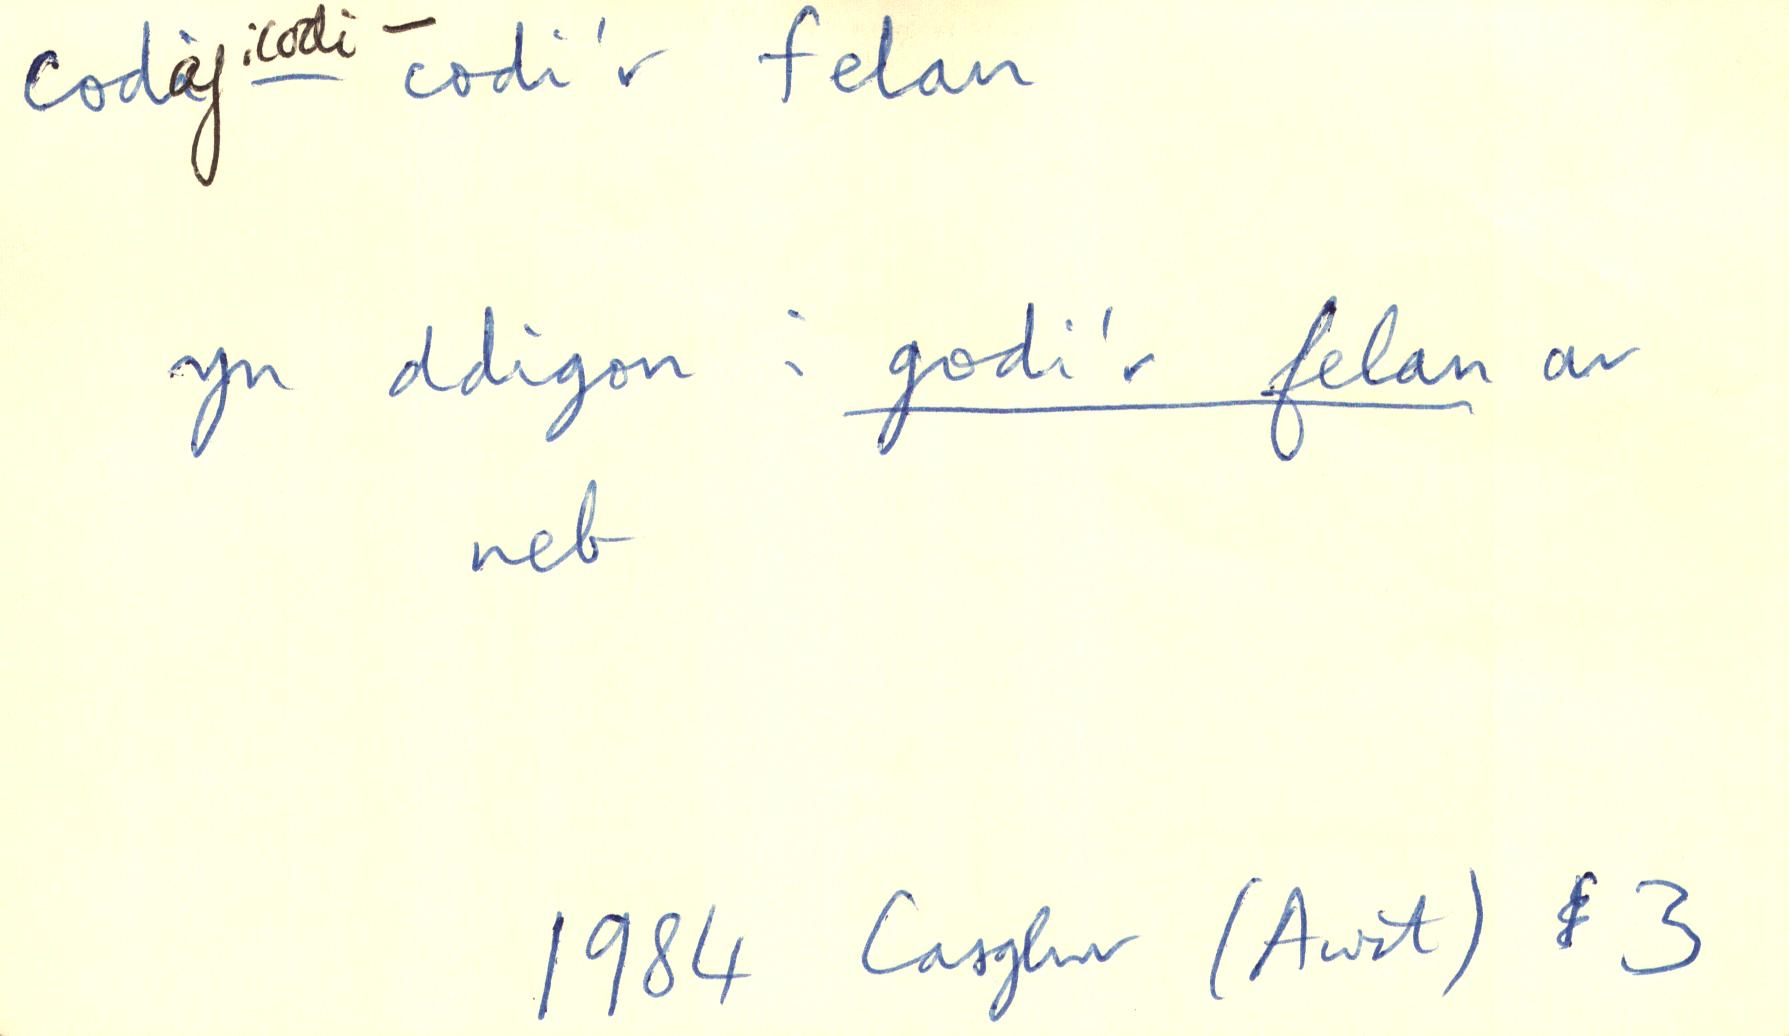 codaf: codi — codi'r felan
yn ddigon i godi'r felan ar
neb
1984 Casglwr (Awst) 3